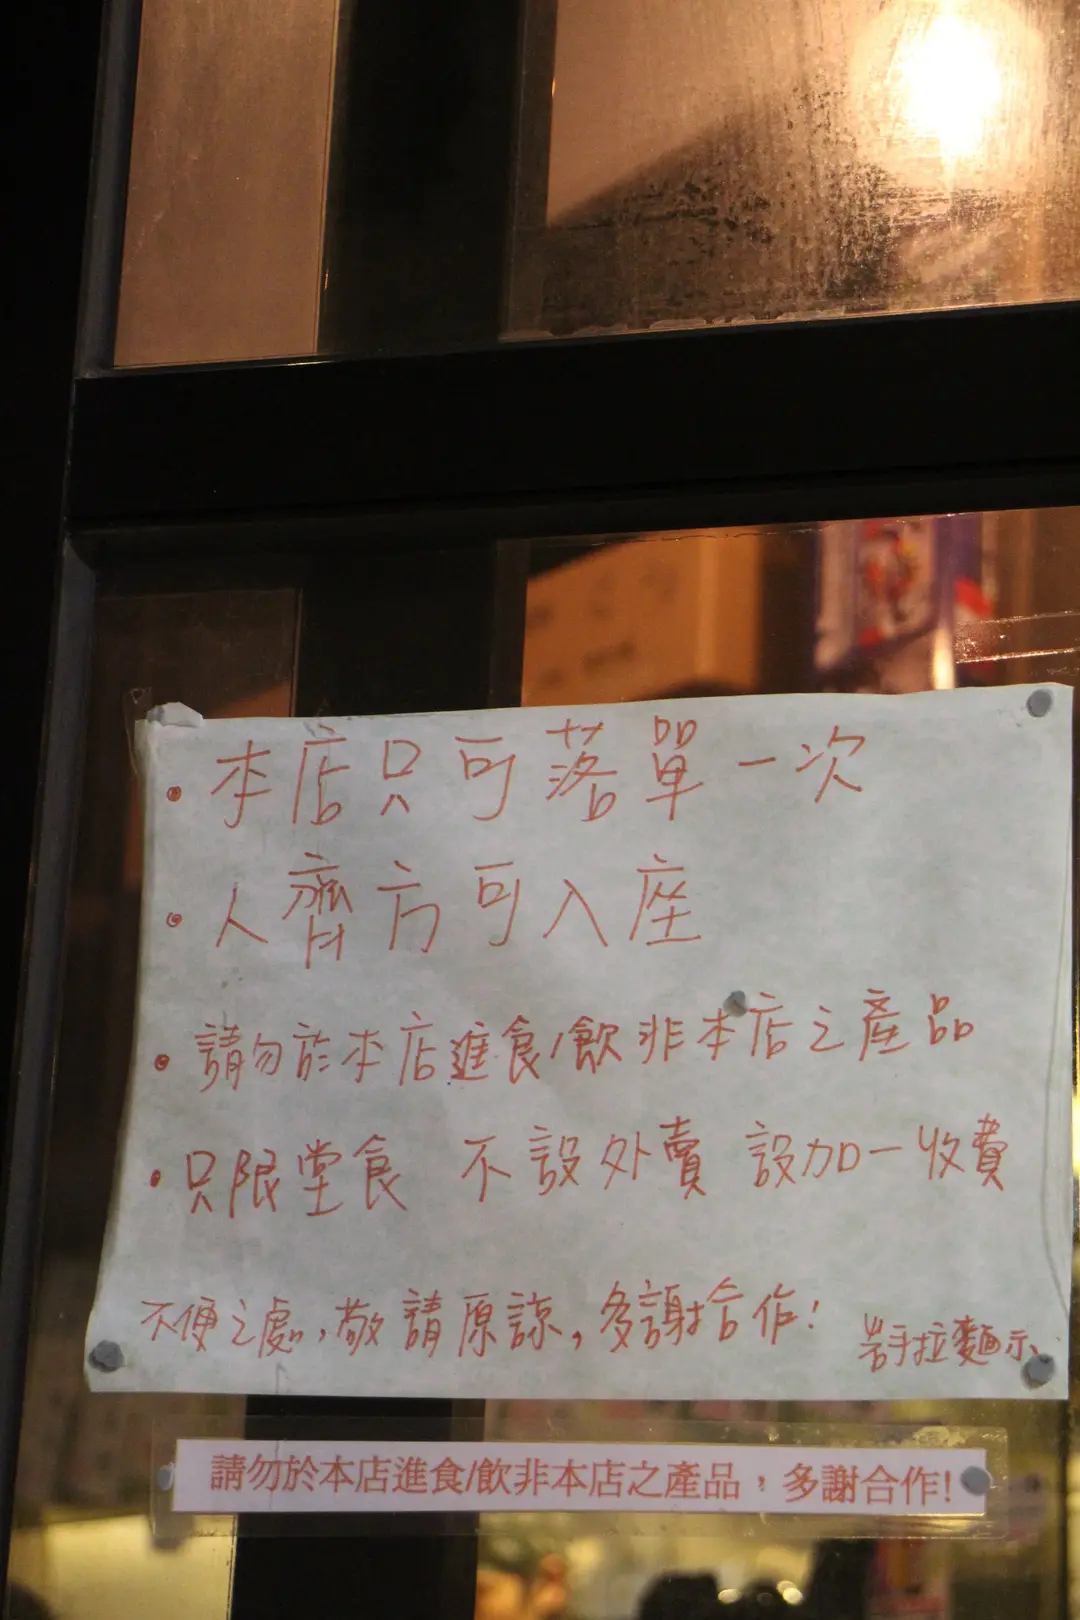 • 本店只可落單一次
• 人齊方可入座
• 請勿於本店進食/飲非本店之產品
• 只限堂食 不設外賣 設加一收費
不便之處，敬請原諒，多謝合作!
岩手拉麵示
請勿於本店進食/飲非本店之產品，多謝合作!